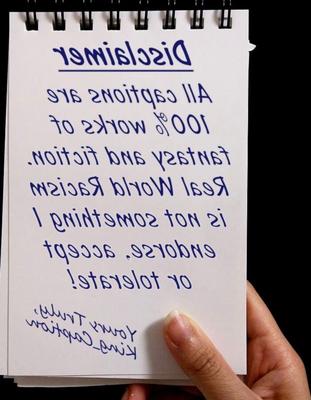 Disclaimer
All captions are
100% works of
fantasy and fiction.
Real World Racism
is not something I
endorse, accept
or tolerate!
Yours Truly,
King_Caption